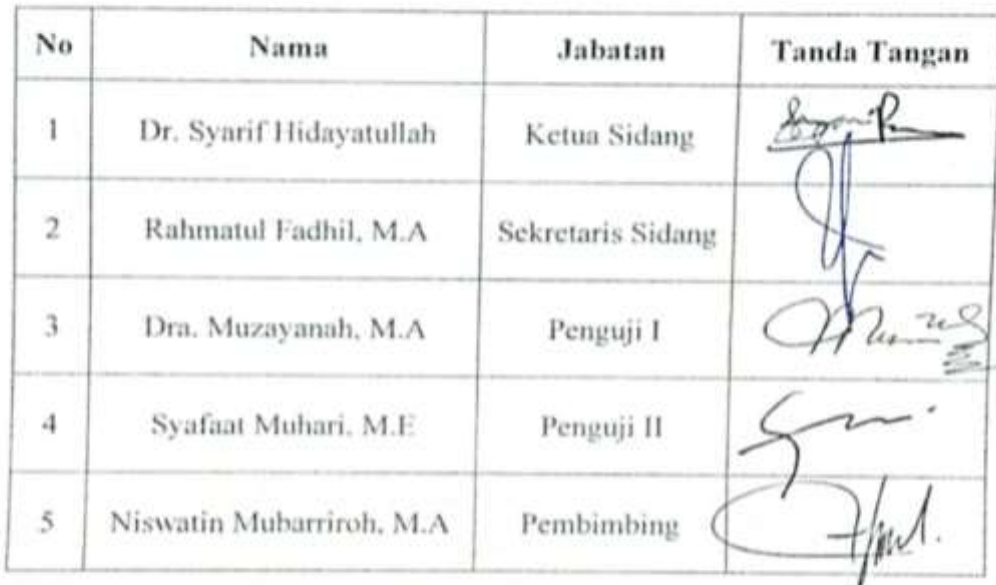 No Nama Jabatan Tanda Tangan
1 Dr. Syarif Hidayatullah Ketua Sidang
2 Rahmatul Fadhil, M.A Sekretaris Sidang
3 Dra. Muzayanah, M.A Penguji I
4 Syafaat Muhari, M.E Penguji II
5 Niswatin Mubarriroh, M.A Pembimbing